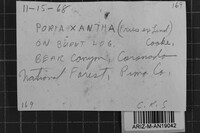 11-15-68
169
PORIA XANTHA (Fries ex Lind)
Cooke.
ON BURNT LOG.
BEAR Canyon, Coronado
National Forest, Pima Co.
169
C.M.S
ARIZ-M-AN19042